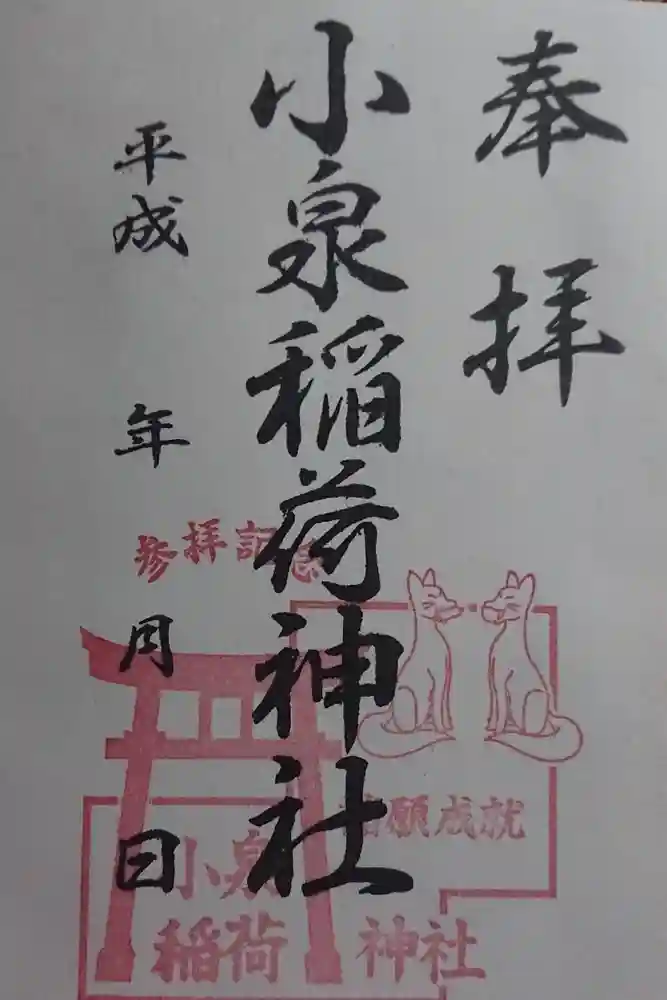 奉拝
小泉稲荷神社
平成 年 月 日
参拝記念
願成就
小泉
稲荷 神社